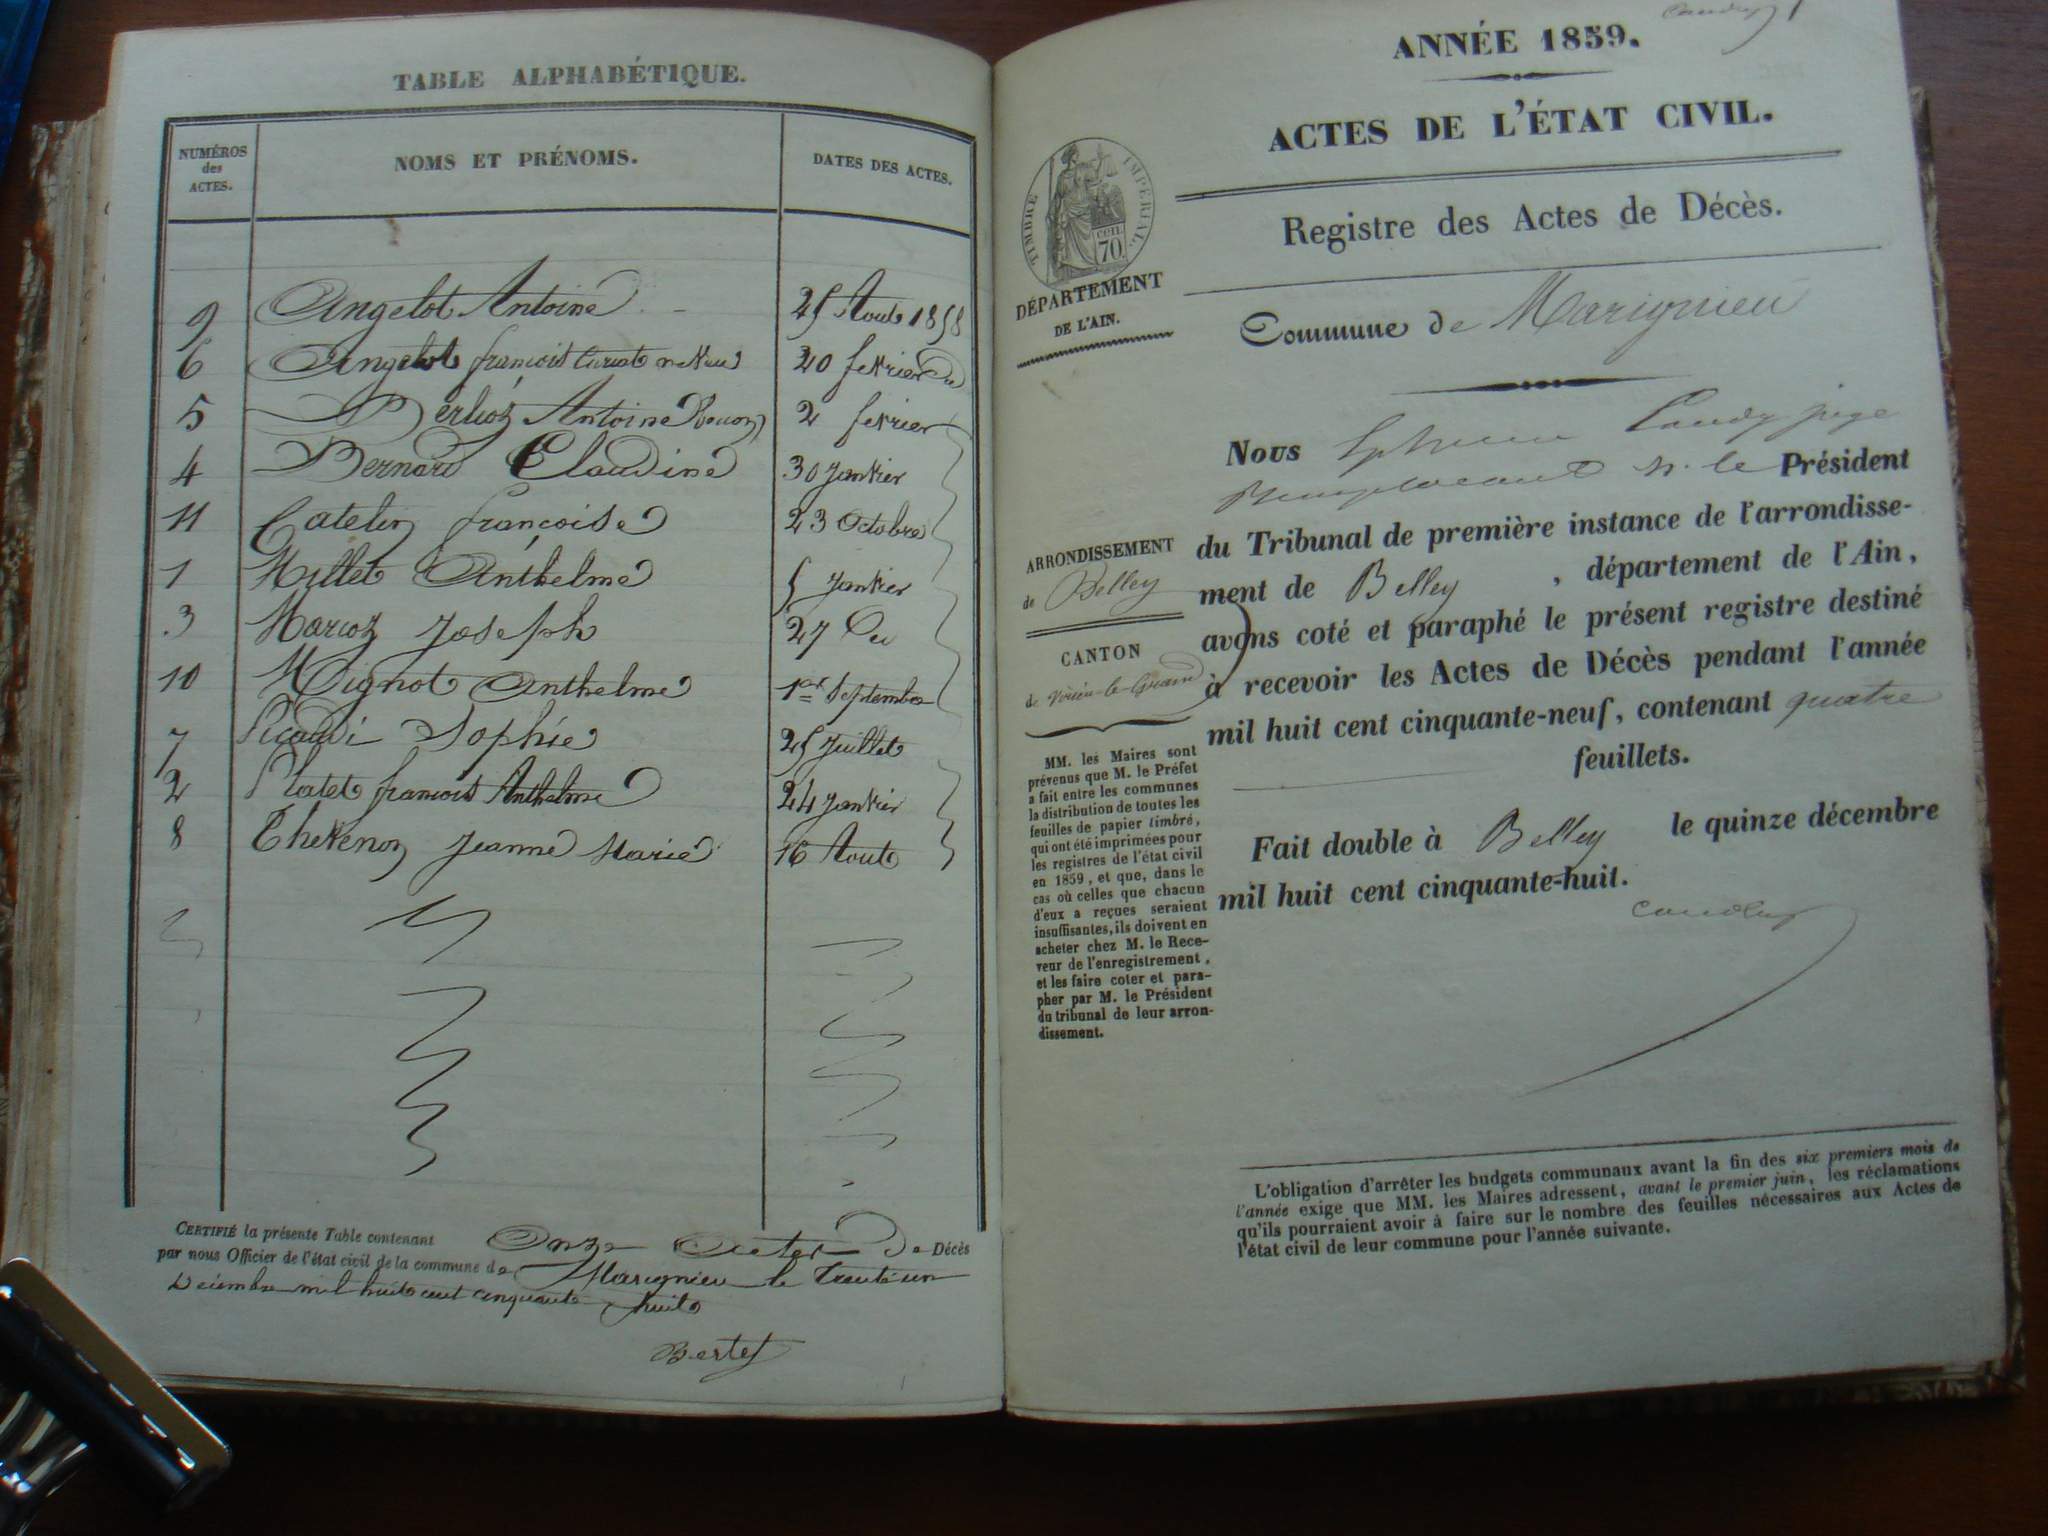 TABLE ALPHABÉTIQUE.
NUMÉROS
des
ACTES.
NOMS ET PRÉNOMS.
DATES DES ACTES.
9 Angelot Antoine 25 Aout 1858
6 Angelot françois 20 fevrier
5 Berlioz Antoine 2 fevrier
4 Bernard Claudine 30 janvier
11 Catelin françoise 23 Octobre
1 Millet Anthelme 5 janvier
3 Marcoz Joseph 27
10 Mignot Anthelme 1er Septembre
7 Picardi Sophie 25 Juillet
2 Platet francois Anthelme 24 janvier
8 Thevenon Jeanne Marie 16 Aout
CERTIFIÉ la présente Table contenant Onze Actes De Décès
par nous Officier de l'état civil de la commune de Marignieu le trente un
Décembre mil huit cent cinquante huit
Bertet
ANNÉE 1859.
ACTES DE L'ÉTAT CIVIL.
TIMBRE IMPÉRIAL.
CEN.
70.
Registre des Actes de Décès.
DÉPARTEMENT
DE L'AIN.
Commune de Marignieu
Nous juge
Remplacant M. le Président
du Tribunal de première instance de l'arrondisse-
ment de Belley , département de l'Ain,
avons coté et paraphé le présent registre destiné
à recevoir les Actes de Décès pendant l'année
mil huit cent cinquante-neuf, contenant quatre
feuillets.
Fait double à Belley le quinze décembre
mil huit cent cinquante-huit.
ARRONDISSEMENT
de Belley
CANTON
de Virieu-le-Grand
MM. les Maires sont
prévenus que M. le Préfet
a fait entre les communes
la distribution de toutes les
feuilles de papier timbré,
qui ont été imprimées pour
les registres de l'état civil
en 1859, et que, dans le
cas où celles que chacun
d'eux a reçues seraient
insuffisantes, ils doivent en
acheter chez M. le Rece-
veur de l'enregistrement,
et les faire coter et para-
pher par M. le Président
du tribunal de leur arron-
dissement.
L'obligation d'arrêter les budgets communaux avant la fin des six premiers mois de
l'année exige que MM. les Maires adressent, avant le premier juin, les réclamations
qu'ils pourraient avoir à faire sur le nombre des feuilles nécessaires aux Actes de
l'état civil de leur commune pour l'année suivante.